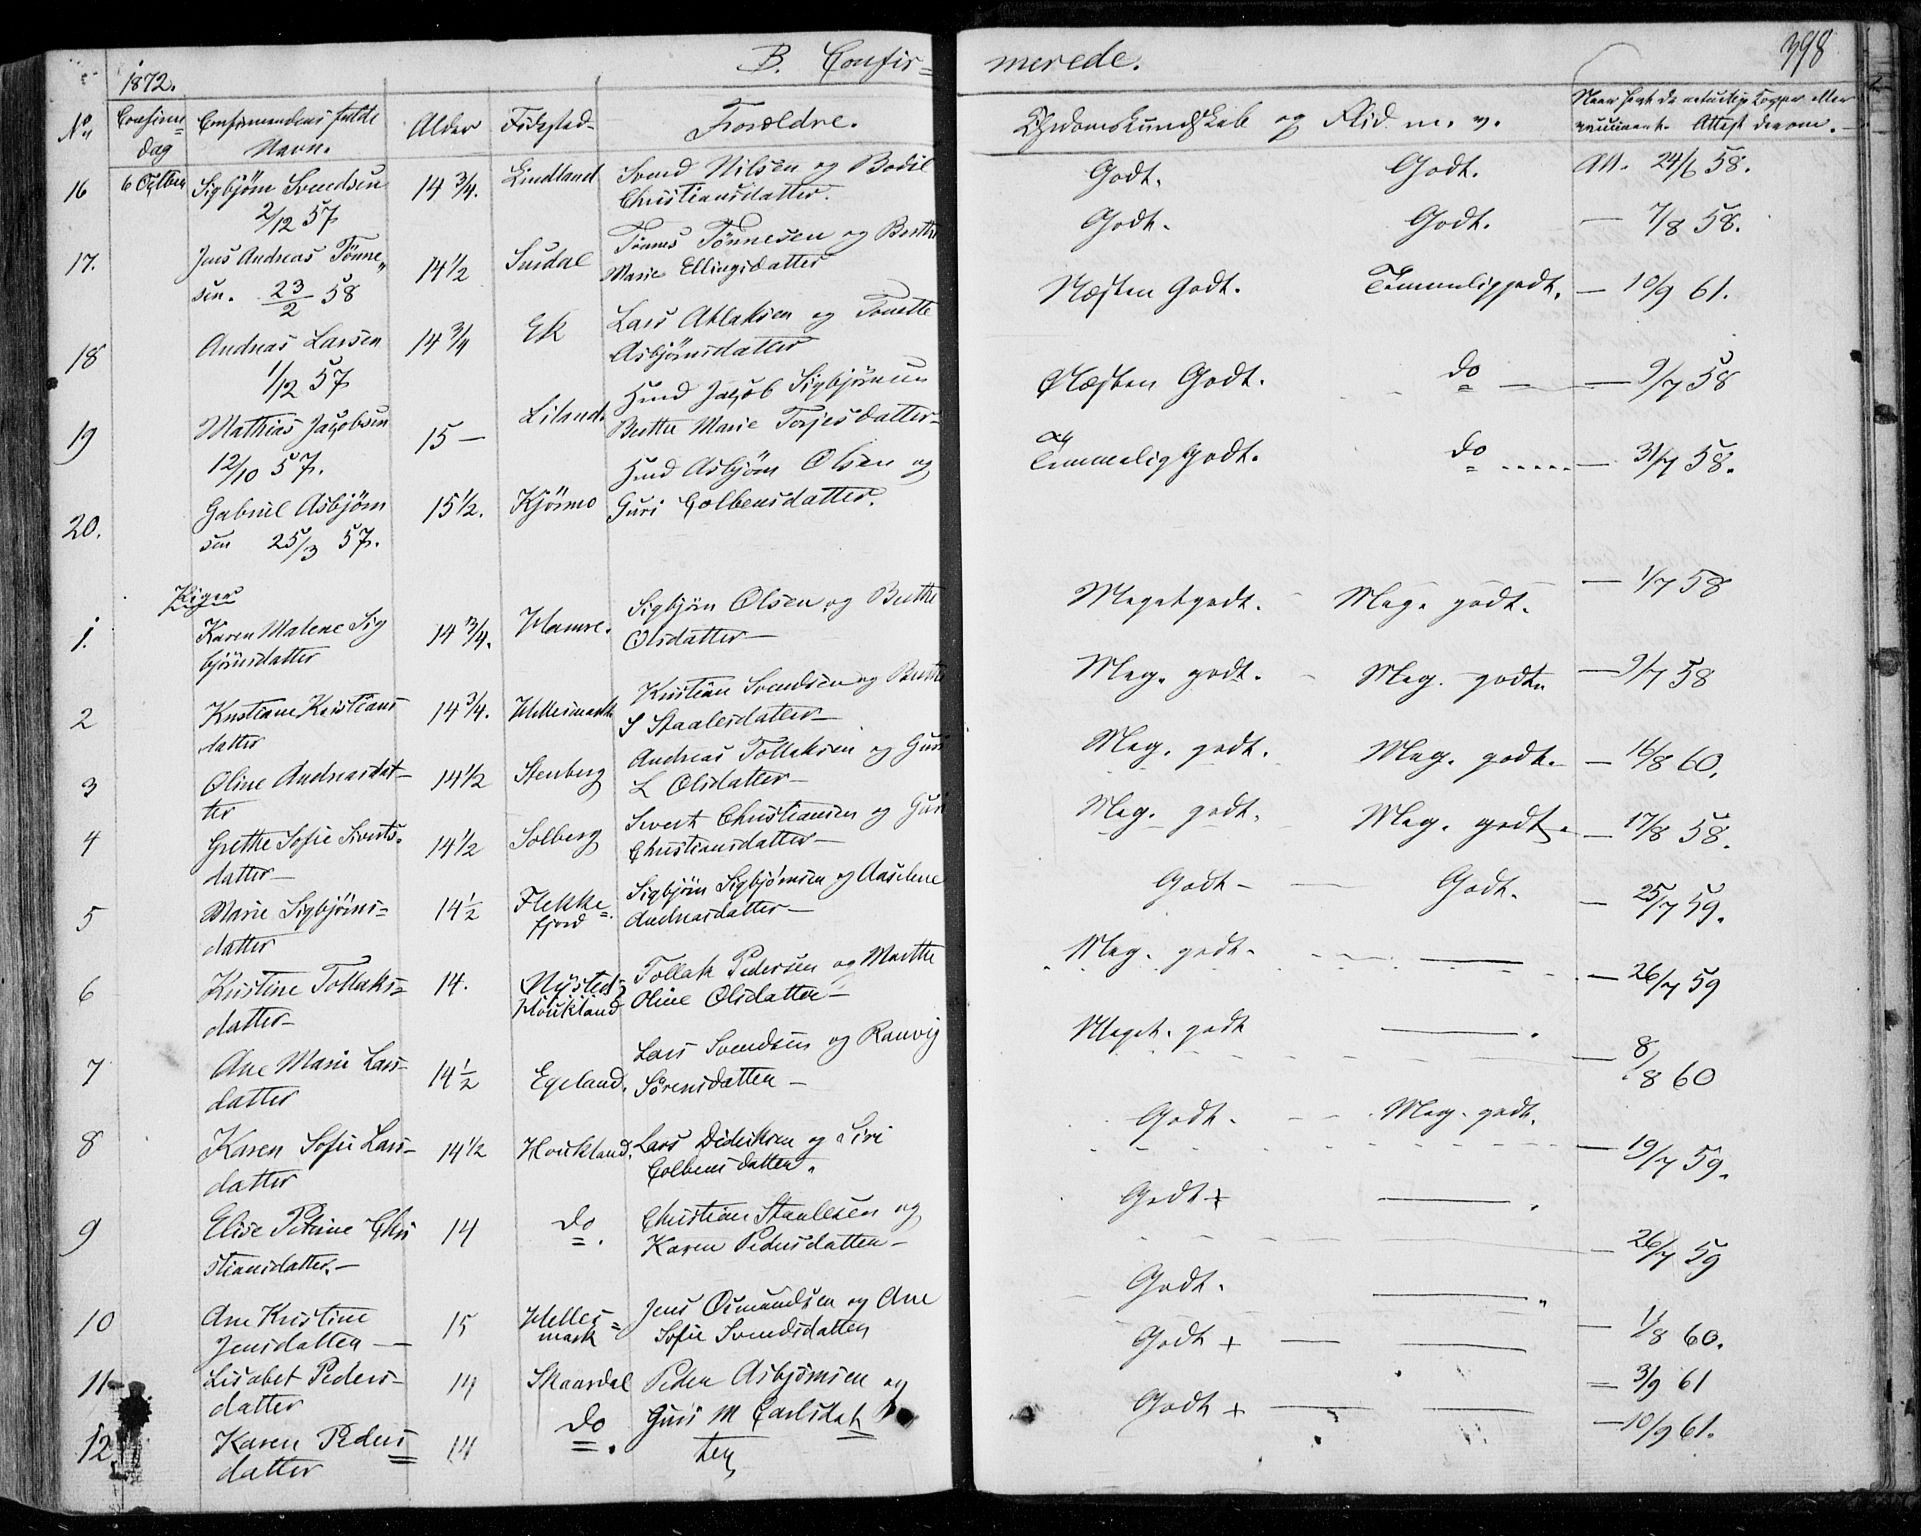 398
1872.
B. Confir=
merede.
No
Confirm=
dag
Confirmandens fulde
Navn.
Alder
Fødested
Forældre.
Christendomskundskab og Flid m. v.
Naar havt de naturlige Kopper eller
vaccineret. Attest derom.
16 6 Octbr Sigbjørn Svendsen 14 3/4. Lindland Svend Nilsen og Bodil Godt. Godt. Att. 24/6 58.
2/12 57 Christiansdatter.
17. Jens Andreas Tønne„ 14 1/2 Suidal Tønnes Tønnesen og Berthe Godt. Godt. — 7/8 58.
sen. 23/2 58 Marie Ellingsdatter
18 Andreas Larsen 14 3/4 Ek Lars Atlaksen og Tonette Næsten Godt. Temmeliggodt. — 10/9 61.
1/12 57 Asbjørnsdatter
19 Mathias Jacobsen 15 — Liland. Hmd Jacob Sigbjørnsen Næsten Godt. do — — 9/7 58
12/10 57. Berthe Marie Terjesdatter
20. Gabriel Asbjørn 15 1/2. Kjørmo Hmd Asbjørn Olsen og Temmelig Godt. do — 31/7 58.
sen 25/3 57. Guri Colbensdatter.
Piger
1. Karen Malene Sig 14 3/4. Hamre. Sigbjørn Olsen og Berthe Megetgodt. Meg. godt. — 1/7 58
bjørnsdatter Olsdatter —
2 Kristiane Kristians 14 3/4. Hellesmark Kristian Svendsen og Berthe Meg. godt. Meg. godt. — 9/7 58
datter S Staalesdatter —
3 Oline Andreasdat— 14 1/2 Stenberg Andreas Tollaksen og Guri Meg. godt. Meg. godt. — 16/8 60.
ter L Olsdatter —
4 Grethe Sofie Siverts. 14 1/2 Solberg Sivert Christiansen og Guri Meg. godt. Meg. godt. — 17/8 58.
datter — Christiansdatter —
5 Marie Sigbjørns= 14 1/2 Flekke= Sigbjørn Sigbjørnsen og Aaselene Godt — Godt. — 25/7 59.
datter fjord Andreasdatter —
6 Kristine Tollaks= 14. Nysted Tollak Pedersen og Marthe Meg. godt. — — 26/7 59
datter — Houkland Oline Olsdatter —
7 Ane Marie Lars— 14 1/2 Egeland. Lars Svendsen og Ranvig Meget. godt — — 8/8 60
datter Sørensdatter —
8 Karen Sofie Lars— 14 1/2 Houkland. Lars Didriksen og Siri Godt. Meg. godt. — 19/7 59.
datter Colbensdatter.
9 Elise Petrine Chri 14 do Christian Staalesen og Godt + — — 26/7 59
stiansdatter. — Karen Pedersdatter —
10 Ane Kristine 15 Helles= Jens Osmundsen og Ane Godt. — — 1/8 60.
Jensdatter — mark Sofie Svendsdatter
11 Lisabet Peders— 14 Skaardal Peder Asbjørnsen og Godt + — — — 3/9 61
datter Guri M Carlsdat
12 Karen Peders 14 do ter Godt + — — — 10/9 61.
datter